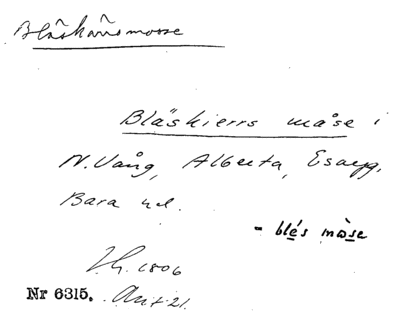 Bläskärrsmosse
Bläskierrs måse i
N. Vång, Alberta, Esarp,
Bara hd.
- blés mòse
Jh. 1806
Nr 6315. Ant 21.